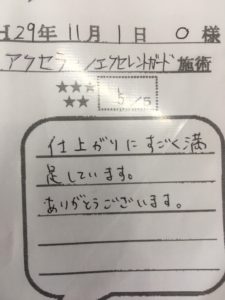 H29年11月1日 O様
アクセラ エクセレントガード施術
★★★
★★
5/5
仕上がりにすごく満
足しています。
ありがとうございます。